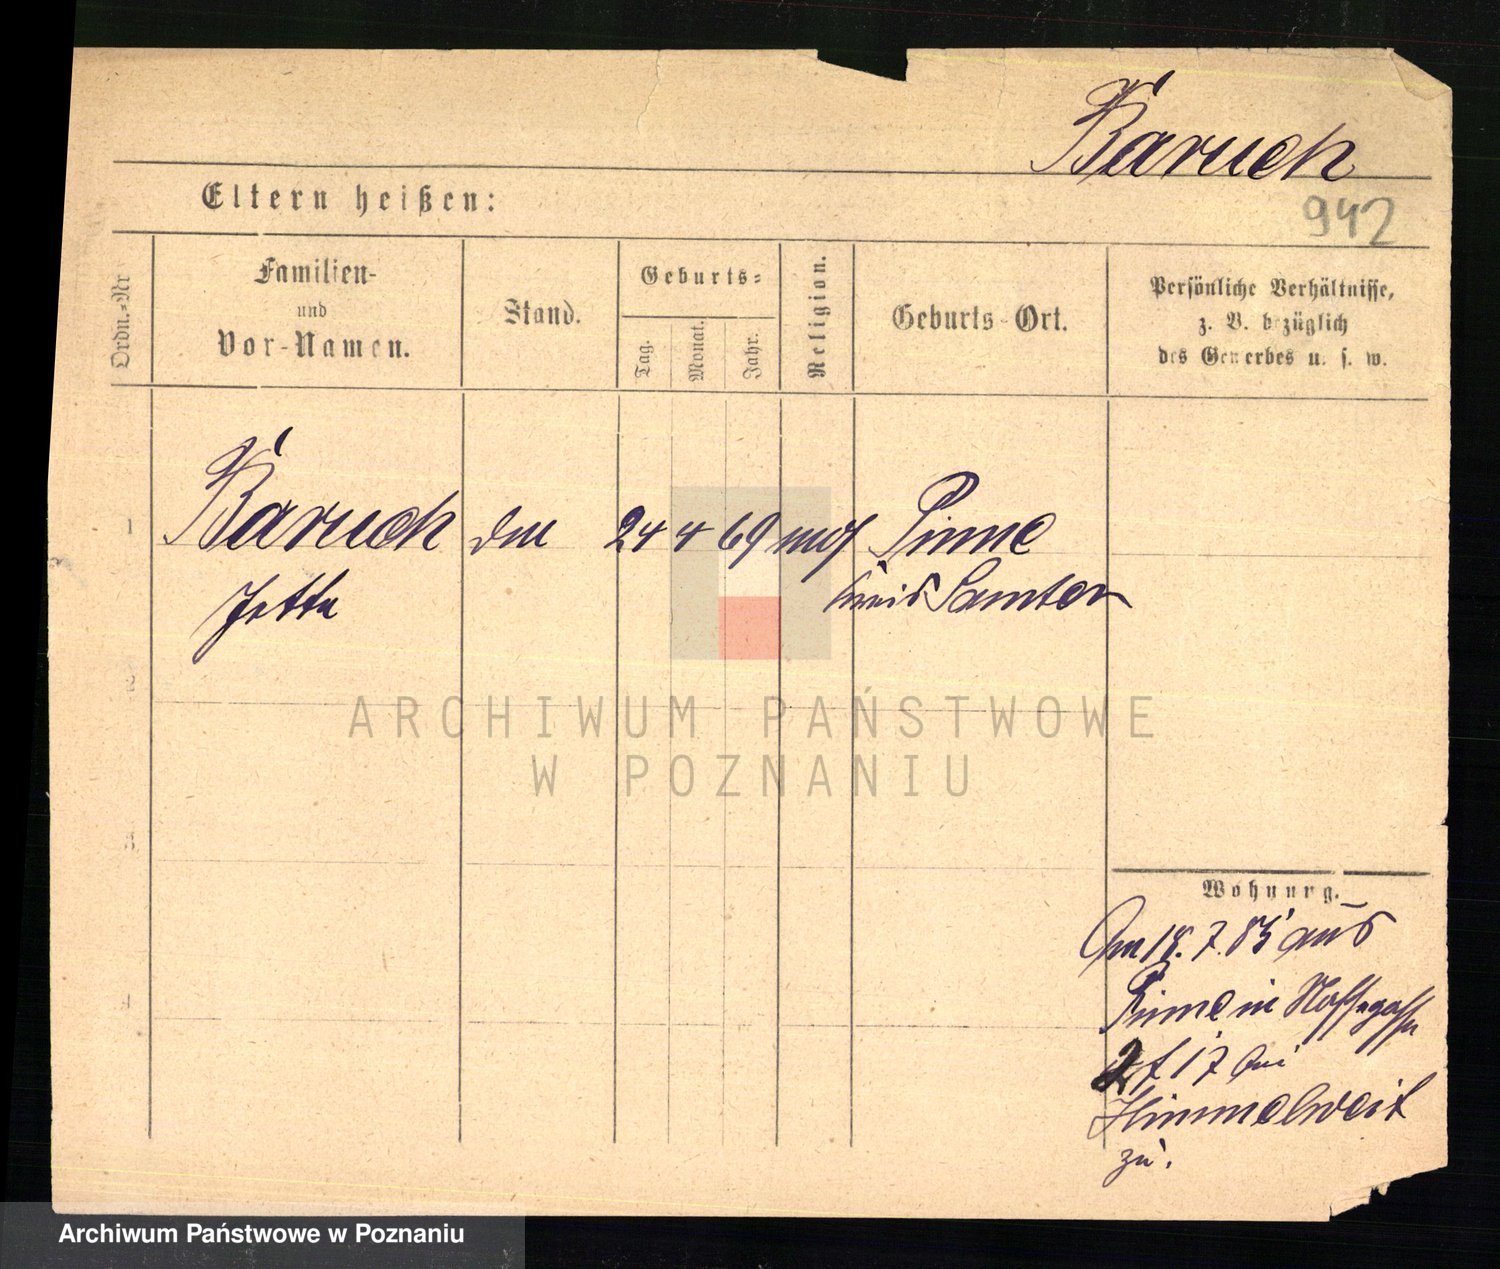 Baruch
942
Eltern heißen:
Ordn.-Nr
Familien-
und
Vor-Namen.
Stand.
Geburts-
Tag.
Monat.
Jahr.
Religion.
Geburts-Ort.
Persönliche Verhältnisse,
z. B. bezüglich
des Gewerbes u. s. w.
1
Baruch
24 4 69 mos Pinne
Jette
Kreis Samter
2
ARCHIWUM PAŃSTWOWE
W POZNANIU
3
4
Wohnung.
Am 18. 7. 85 aus
Pinne in
17 bei
Himmelweit
zu.
Archiwum Państwowe w Poznaniu